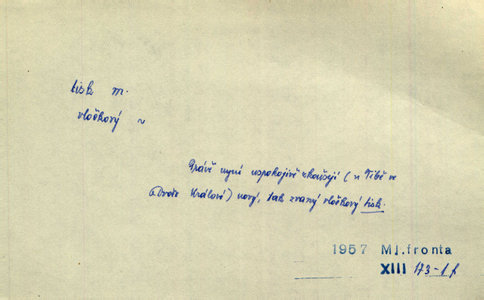 tisk m.
vločkový ~
Právě nyní uspokojivě zkoušejí (u Tibě ve
Dvoře Králové) nový, tak zvaný vločkový tisk.
1957 Ml.fronta
XIII 173-1,f